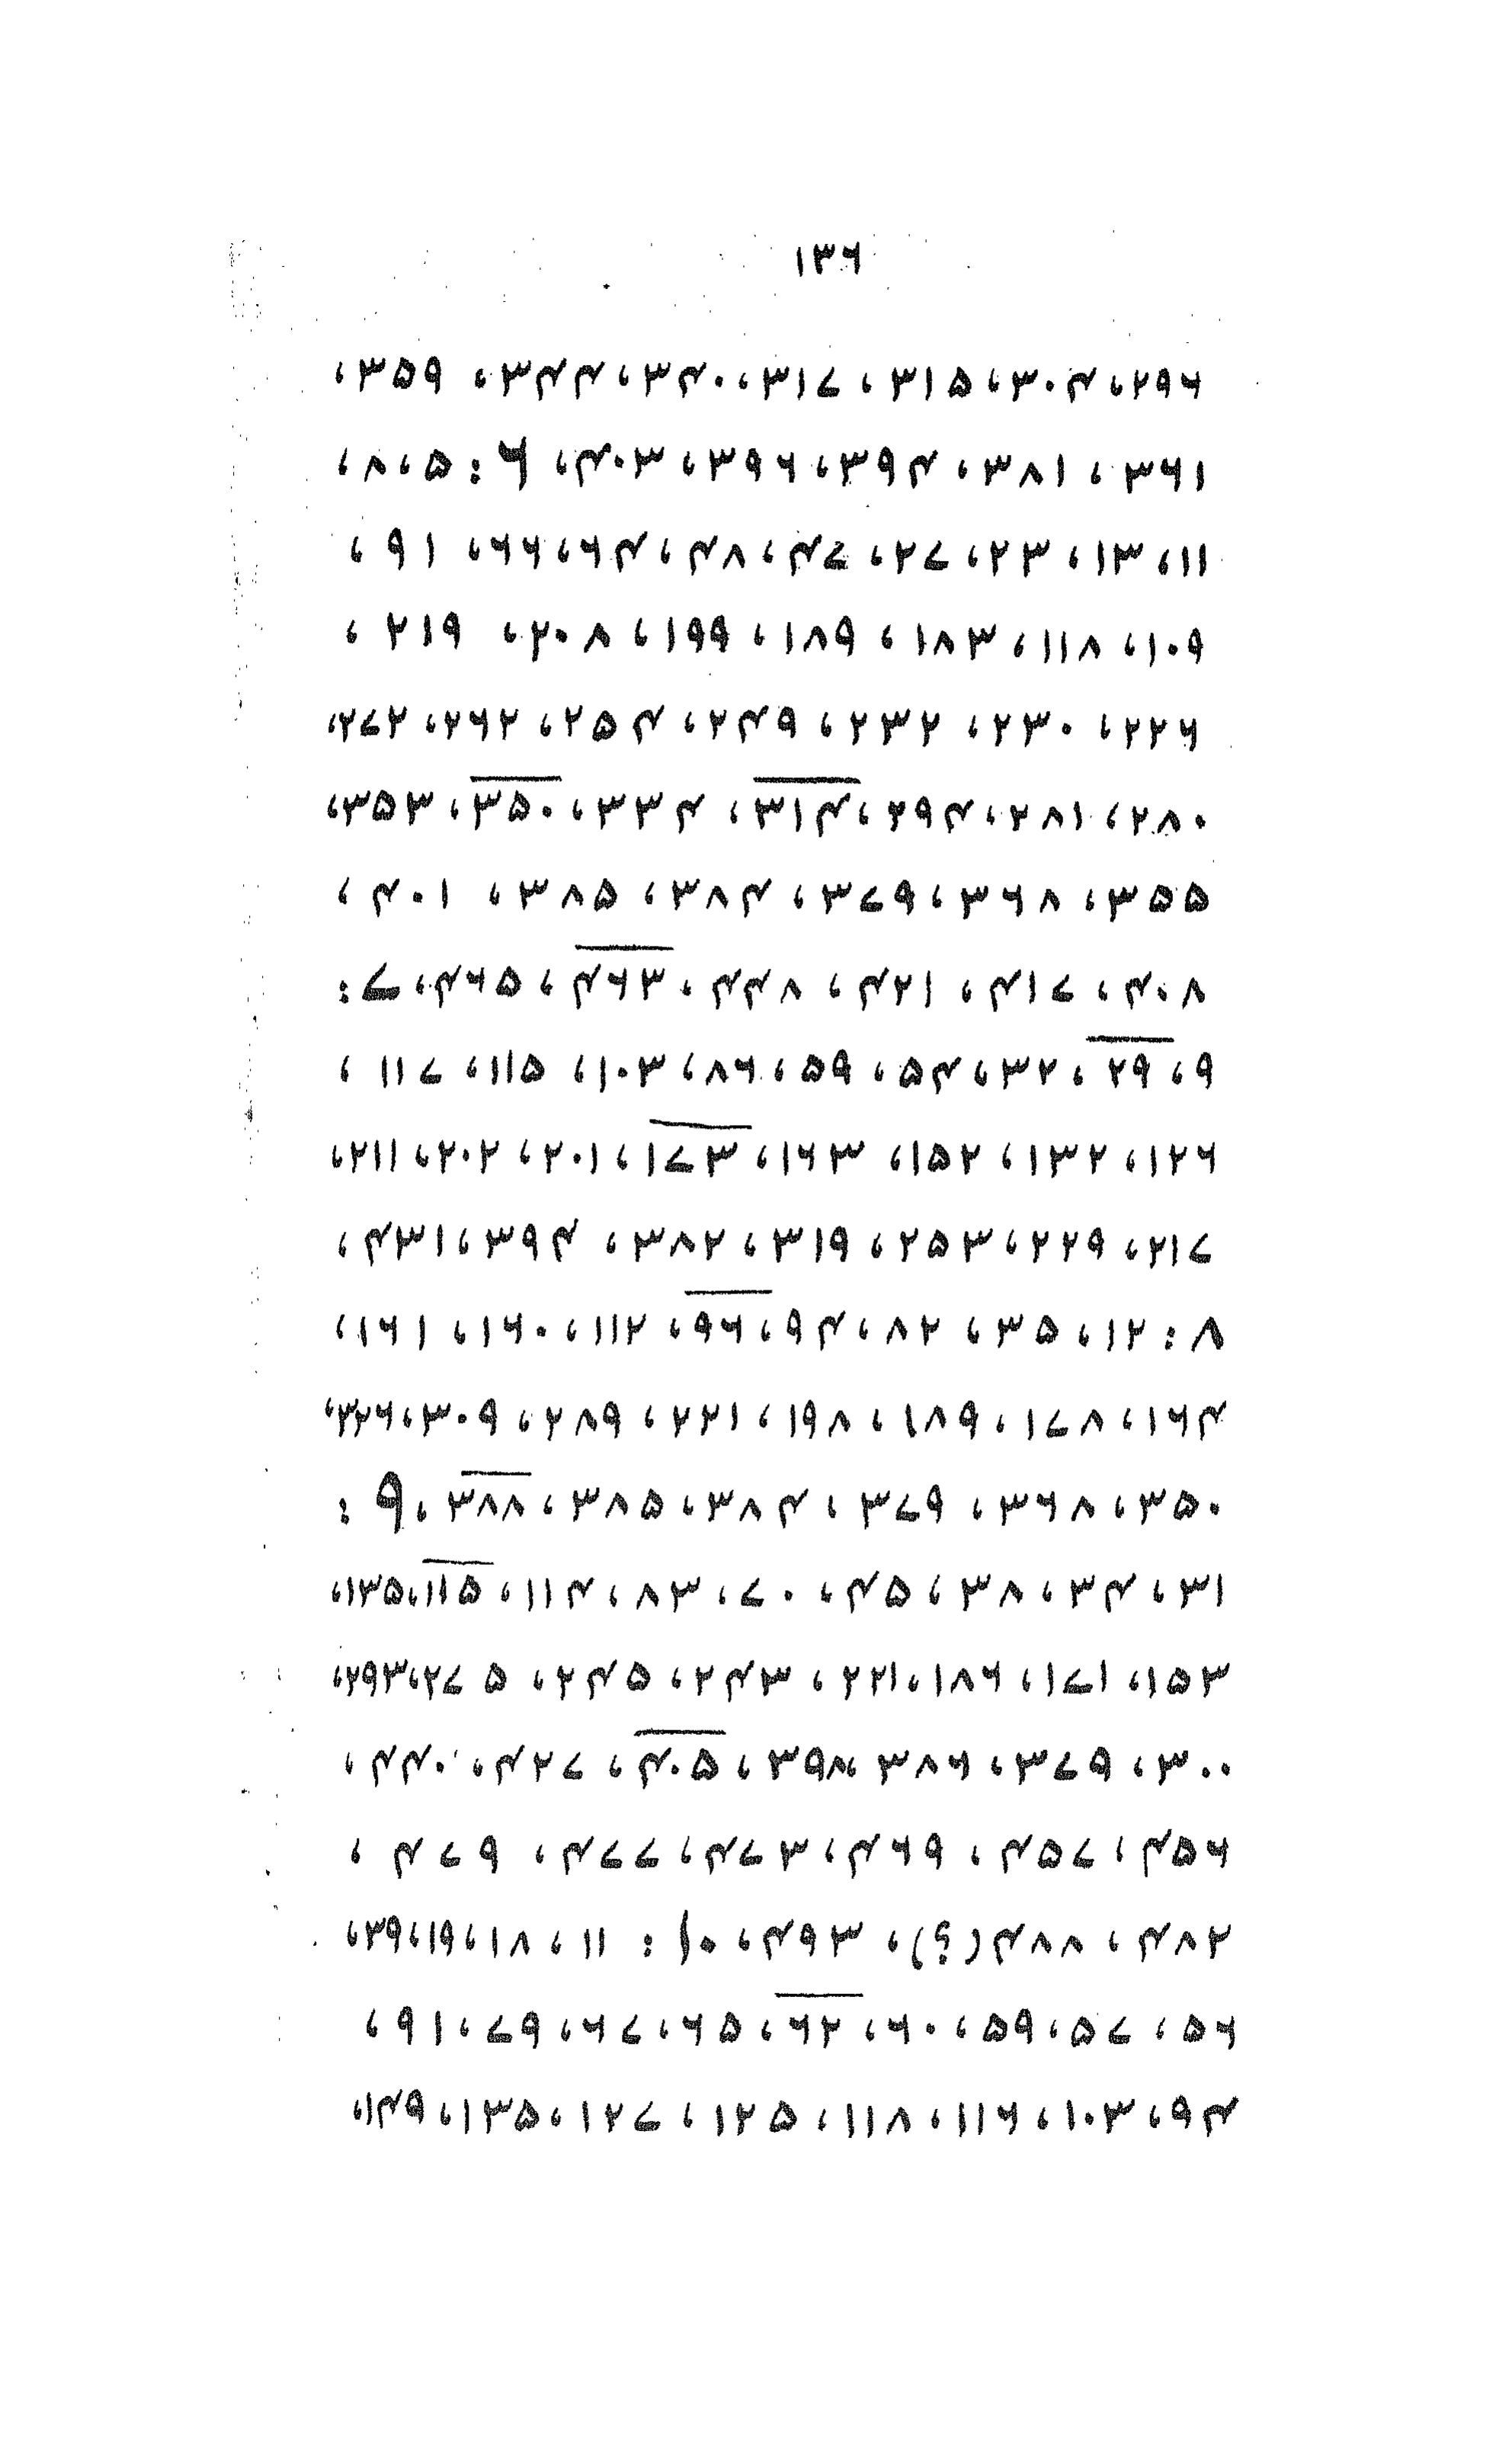 ۱۳۶
۲۹۶، ۳۰۴، ۳۱۵، ۳۱۷، ۳۴۰، ۳۴۴، ۳۵۹،
۳۶۱، ۳۸۱، ۳۹۴، ۳۹۶، ۴۰۳، ۶: ۵، ۸،
۱۱، ۱۳، ۲۳، ۲۷، ۴۷، ۴۸، ۶۴، ۶۶، ۹۱،
۱۰۹، ۱۱۸، ۱۸۳، ۱۸۹، ۱۹۹، ۲۰۸، ۲۱۹،
۲۲۶، ۲۳۰، ۲۳۲، ۲۴۹، ۲۵۴، ۲۶۲، ۲۷۲،
۲۸۰، ۲۸۱، ۲۹۴، ۳۱۴، ۳۳۴، ۳۵۰، ۳۵۳،
۳۵۵، ۳۶۸، ۳۷۹، ۳۸۴، ۳۸۵، ۴۰۱،
۴۰۸، ۴۱۷، ۴۲۱، ۴۴۸، ۴۶۳، ۴۶۵، ۷:
۹، ۲۹، ۳۲، ۵۴، ۵۹، ۸۶، ۱۰۳، ۱۱۵، ۱۱۷،
۱۲۶، ۱۳۲، ۱۵۲، ۱۶۳، ۱۷۳، ۲۰۱، ۲۰۲، ۲۱۱،
۲۱۷، ۲۲۹، ۲۵۳، ۳۱۹، ۳۸۲، ۳۹۴، ۴۳۱،
۸: ۱۲، ۳۵، ۸۲، ۹۴، ۹۶، ۱۱۲، ۱۶۰، ۱۶۱،
۱۶۴، ۱۷۸، ۱۸۹، ۱۹۸، ۲۲۱، ۲۸۹، ۳۰۹، ۳۲۶،
۳۵۰، ۳۶۸، ۳۷۹، ۳۸۴، ۳۸۵، ۳۸۸، ۹:
۳۱، ۳۴، ۳۸، ۴۵، ۷۰، ۸۳، ۱۱۴، ۱۱۵، ۱۳۵،
۱۵۳، ۱۷۱، ۱۸۶، ۲۲۱، ۲۴۳، ۲۴۵، ۲۷۵، ۲۹۳،
۳۰۰، ۳۷۹، ۳۸۶، ۳۹۸، ۴۰۵، ۴۲۷، ۴۴۰،
۴۵۶، ۴۵۷، ۴۶۹، ۴۷۳، ۴۷۷، ۴۷۹،
۴۸۲، ۴۸۸(؟)، ۴۹۳، ۱۰: ۱۱، ۱۸، ۱۹، ۳۹،
۵۶، ۵۷، ۵۹، ۶۰، ۶۲، ۶۵، ۶۷، ۷۹، ۹۱،
۹۴، ۱۰۳، ۱۱۶، ۱۱۸، ۱۲۵، ۱۲۷، ۱۳۵، ۱۴۹،